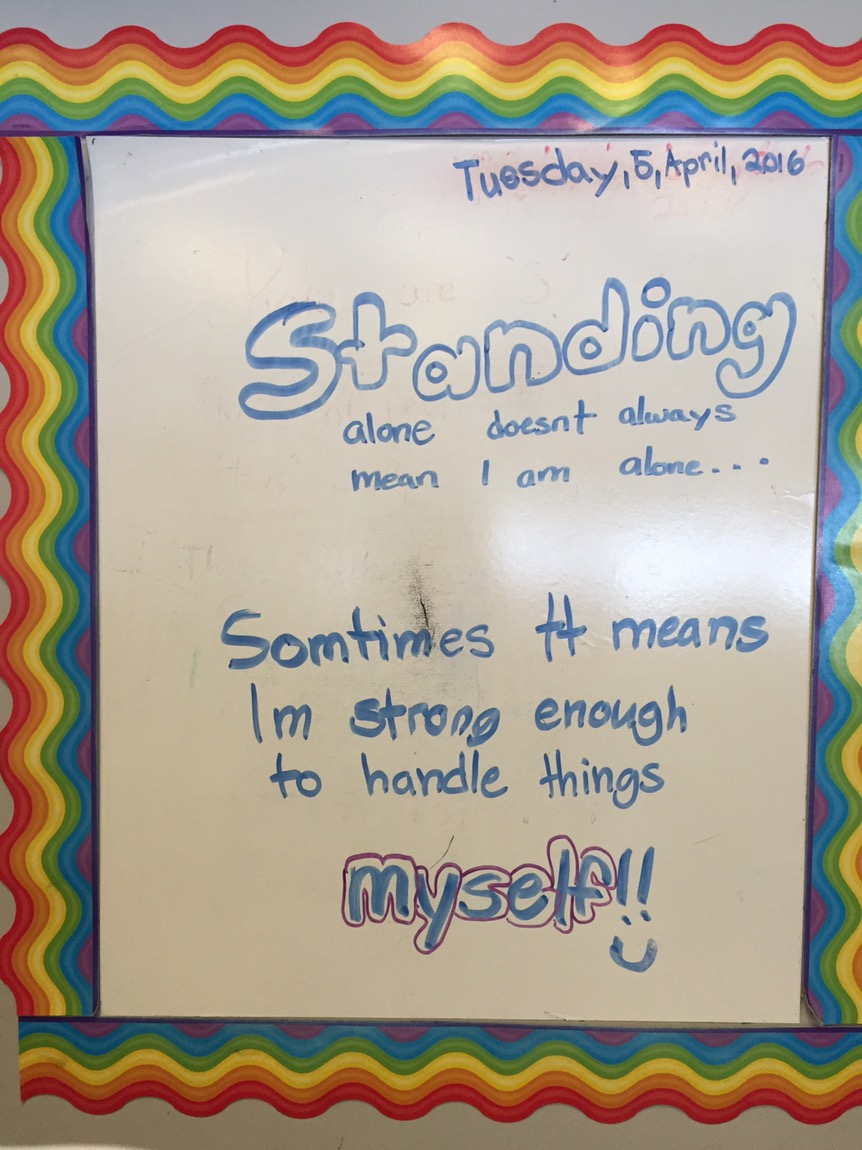 Tuesday, 5, April, 2016
Standing
alone doesnt always
mean I am alone...
Somtimes It means
Im strong enough
to handle things
myself!!